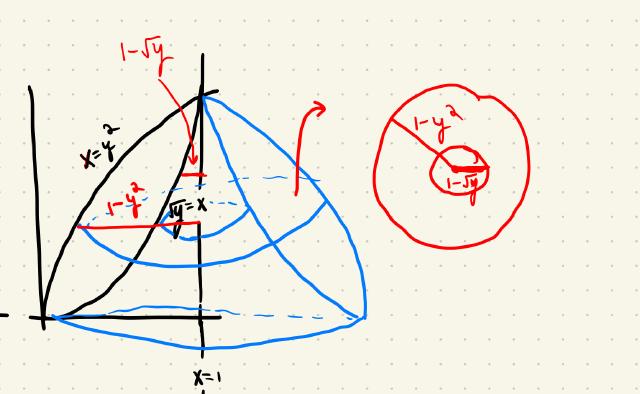 1-√y
x=y²
1-y²
√y=x
x=1
1-y²
1-√y